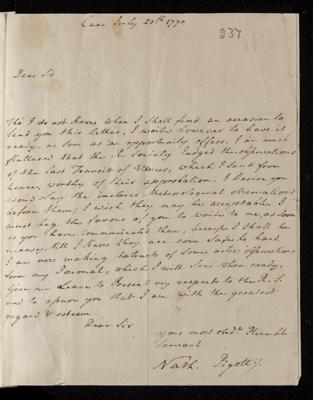 Caen July 20th 1770
237
Dear Sir
Tho' I do not know when I shall find an occasion to
send you this letter, I write however to have it
ready, as soon as an opportunity offers, I am much
flattered that the R. Society judged the observations
of the last Transit of Venus, which I sent from
hence, worthy of their approbation. I desire you
would lay the inclosed Meteorological observations
before them; I wish they may be acceptable. I
must beg the favour of you to write to me, as soon
as you have communicated them, because I shall be
uneasy, till I know they are come safe to hand.
I am now making extracts of some astr: observations
from my Journals, which I will send when ready.
Give me Leave to Present my respects to the R. S.
and to assure you that I am with the greatest
regard & esteem
Dear Sir
your most obedt. Humble
Servant
Nath. Pigott